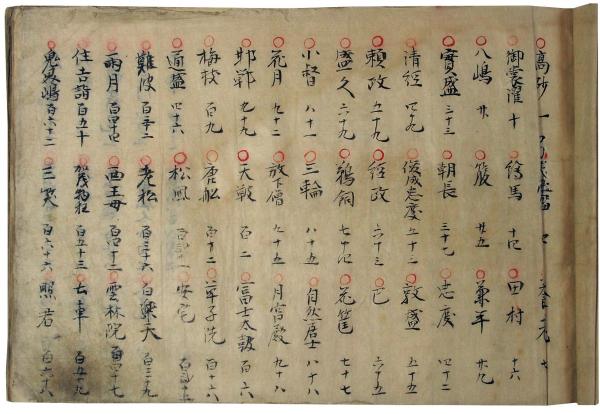 高砂 一
御裳濯 十 繪馬 十四 田村 十六
八嶋 廿 箙 廿五 兼平 廿九
實盛 三十三 朝長 三十七 忠度 四十二
清經 四十九 俊成忠度 五十二 敦盛 五十五
頼政 五十九 經政 六十三 巴 六十五
盛久 六十九 鵜飼 七十四 花筐 七十七
小督 八十一 三輪 八十五 自然居士 八十八
花月 九十二 放下僧 九十五 月宮殿 九十八
邯鄲 九十九 天鼓 百二 富士太鼓 百六
梅枝 百九 唐船 百十二 草子洗
通盛 松風 安宅
難波 百三十二 老松 百三十六 白樂天 百三十九
雨月 西王母 百四十二 雲林院 百四十七
住吉詣 百五十 賀茂物狂 百五十三 車 百五十九
鬼界嶋 百六十二 三笑 百六十六 照君 百六十八